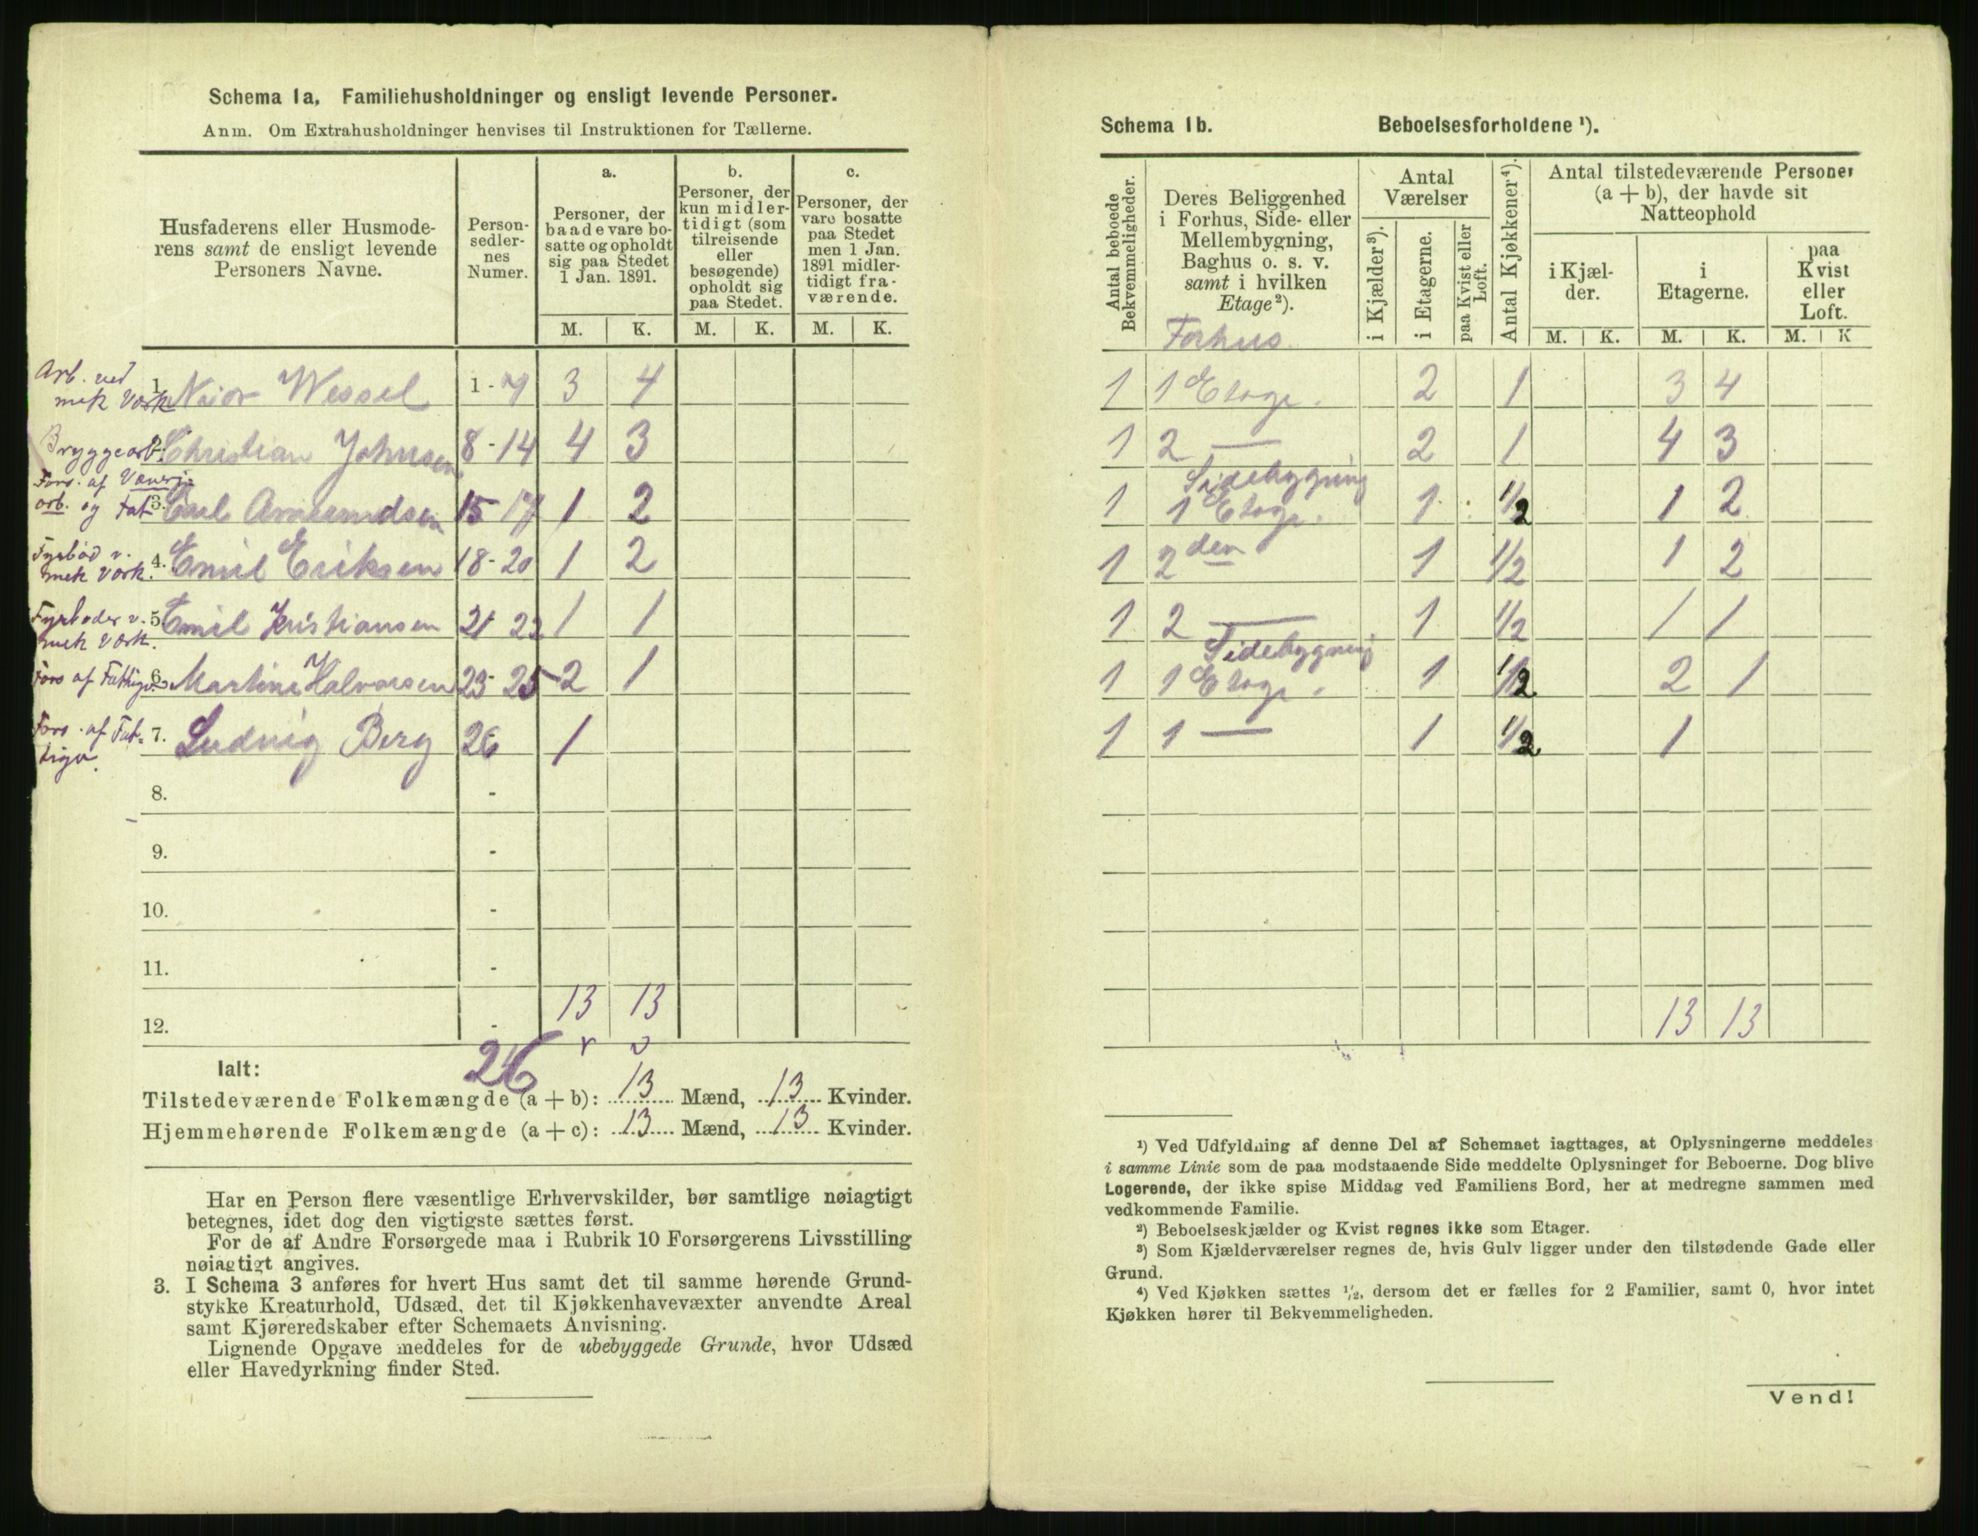 Schema 1a. Familiehusholdninger og ensligt levende Personer.
Anm. Om Extrahusholdninger henvises til Instruktionen for Tællerne.
Husfaderens eller Husmode-
rens samt de ensligt levende
Personers Navne.
Person-
sedler-
nes
Numer.
a.
Personer, der
baade vare bo-
satte og opholdt
sig paa Stedet
1 Jan. 1891.
b.
Personer, der
kun midler-
tidigt (som
tilreisende
eller
besøgende)
opholdt sig
paa Stedet.
c.
Personer, der
vare bosatte
paa Stedet
men 1 Jan.
1891 midler-
tidigt fra-
værende.
M. K. M. K. M. K.
Arb. ved
mek Værk
1. Wessel 1 - 7 3 4
Bryggearb. 2. Christian Johnsen 8 - 14 4 3
Fors. af
arb. og Fat 3. Carl Amundsen 15 - 17 1 2
Fyrbød v.
mek Værk. 4. Emil Eriksen 18 - 20 1 2
Fyrbøder v. 5. Emil Kristiansen 21 22 1 1
mek Værk.
Fors af Fattigv. 6. Martine Halvorsen 23 - 25 2 1
Fors. af Fat- 7. Ludvig Berg 26 1
tigv.
8. -
9. -
10. -
11. -
13 13
12. -
Ialt: 26
Tilstedeværende Folkemængde (a + b): 13 Mænd, 13 Kvinder.
Hjemmehørende Folkemængde (a + c): 13 Mænd, 13 Kvinder.
Har en Person flere væsentlige Erhvervskilder, bør samtlige nøiagtigt
betegnes, idet dog den vigtigste sættes først.
For de af Andre Forsørgede maa i Rubrik 10 Forsørgerens Livsstilling
nøiagtigt angives.
3. I Schema 3 anføres for hvert Hus samt det til samme hørende Grund-
stykke Kreaturhold, Udsæd, det til Kjøkkenhavevæxter anvendte Areal
samt Kjøreredskaber efter Schemaets Anvisning.
Lignende Opgave meddeles for de ubebyggede Grunde, hvor Udsæd
eller Havedyrkning finder Sted.
Schema 1b. Beboelsesforholdene ¹).
Antal beboede
Bekvemmeligheder.
Deres Beliggenhed
i Forhus, Side- eller
Mellembygning,
Baghus o. s. v.
samt i hvilken
Etage²).
Antal
Værelser
i Kjælder³).
i Etagerne.
paa Kvist eller
Loft.
Antal Kjøkkener⁴).
Antal tilstedeværende Personer
(a + b), der havde sit
Natteophold
i Kjæl-
der.
i
Etagerne.
paa
Kvist
eller
Loft.
M. K. M. K. M. K
Forhus
1 1 Etage. 2 1 3 4
1 2 — 2 1 4 3
Sidebygning
1 1 Etage. 1 1/2 1 2
1 2 den 1 1/2 1 2
1 2 — 1 1/2 1 1
Sidebygning
1 1 Etage. 1 1/2 2 1
1 1 — 1 1/2 1
13 13
¹) Ved Udfyldning af denne Del af Schemaet iagttages, at Oplysningerne meddeles
i samme Linie som de paa modstaaende Side meddelte Oplysninger for Beboerne. Dog blive
Logerende, der ikke spise Middag ved Familiens Bord, her at medregne sammen med
vedkommende Familie.
²) Beboelseskjælder og Kvist regnes ikke som Etager.
³) Som Kjælderværelser regnes de, hvis Gulv ligger under den tilstødende Gade eller
Grund.
⁴) Ved Kjøkken sættes ¹/₂, dersom det er fælles for 2 Familier, samt 0, hvor intet
Kjøkken hører til Bekvemmeligheden.
Vend!